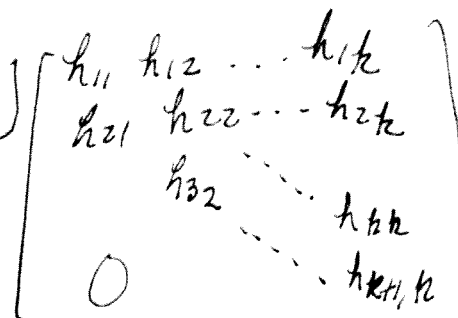 ] [ h₁₁ h₁₂ ... h₁k )
h₂₁ h₂₂ ... h₂k
h₃₂ ⋱ hkk
0 ⋱ hk+1,k